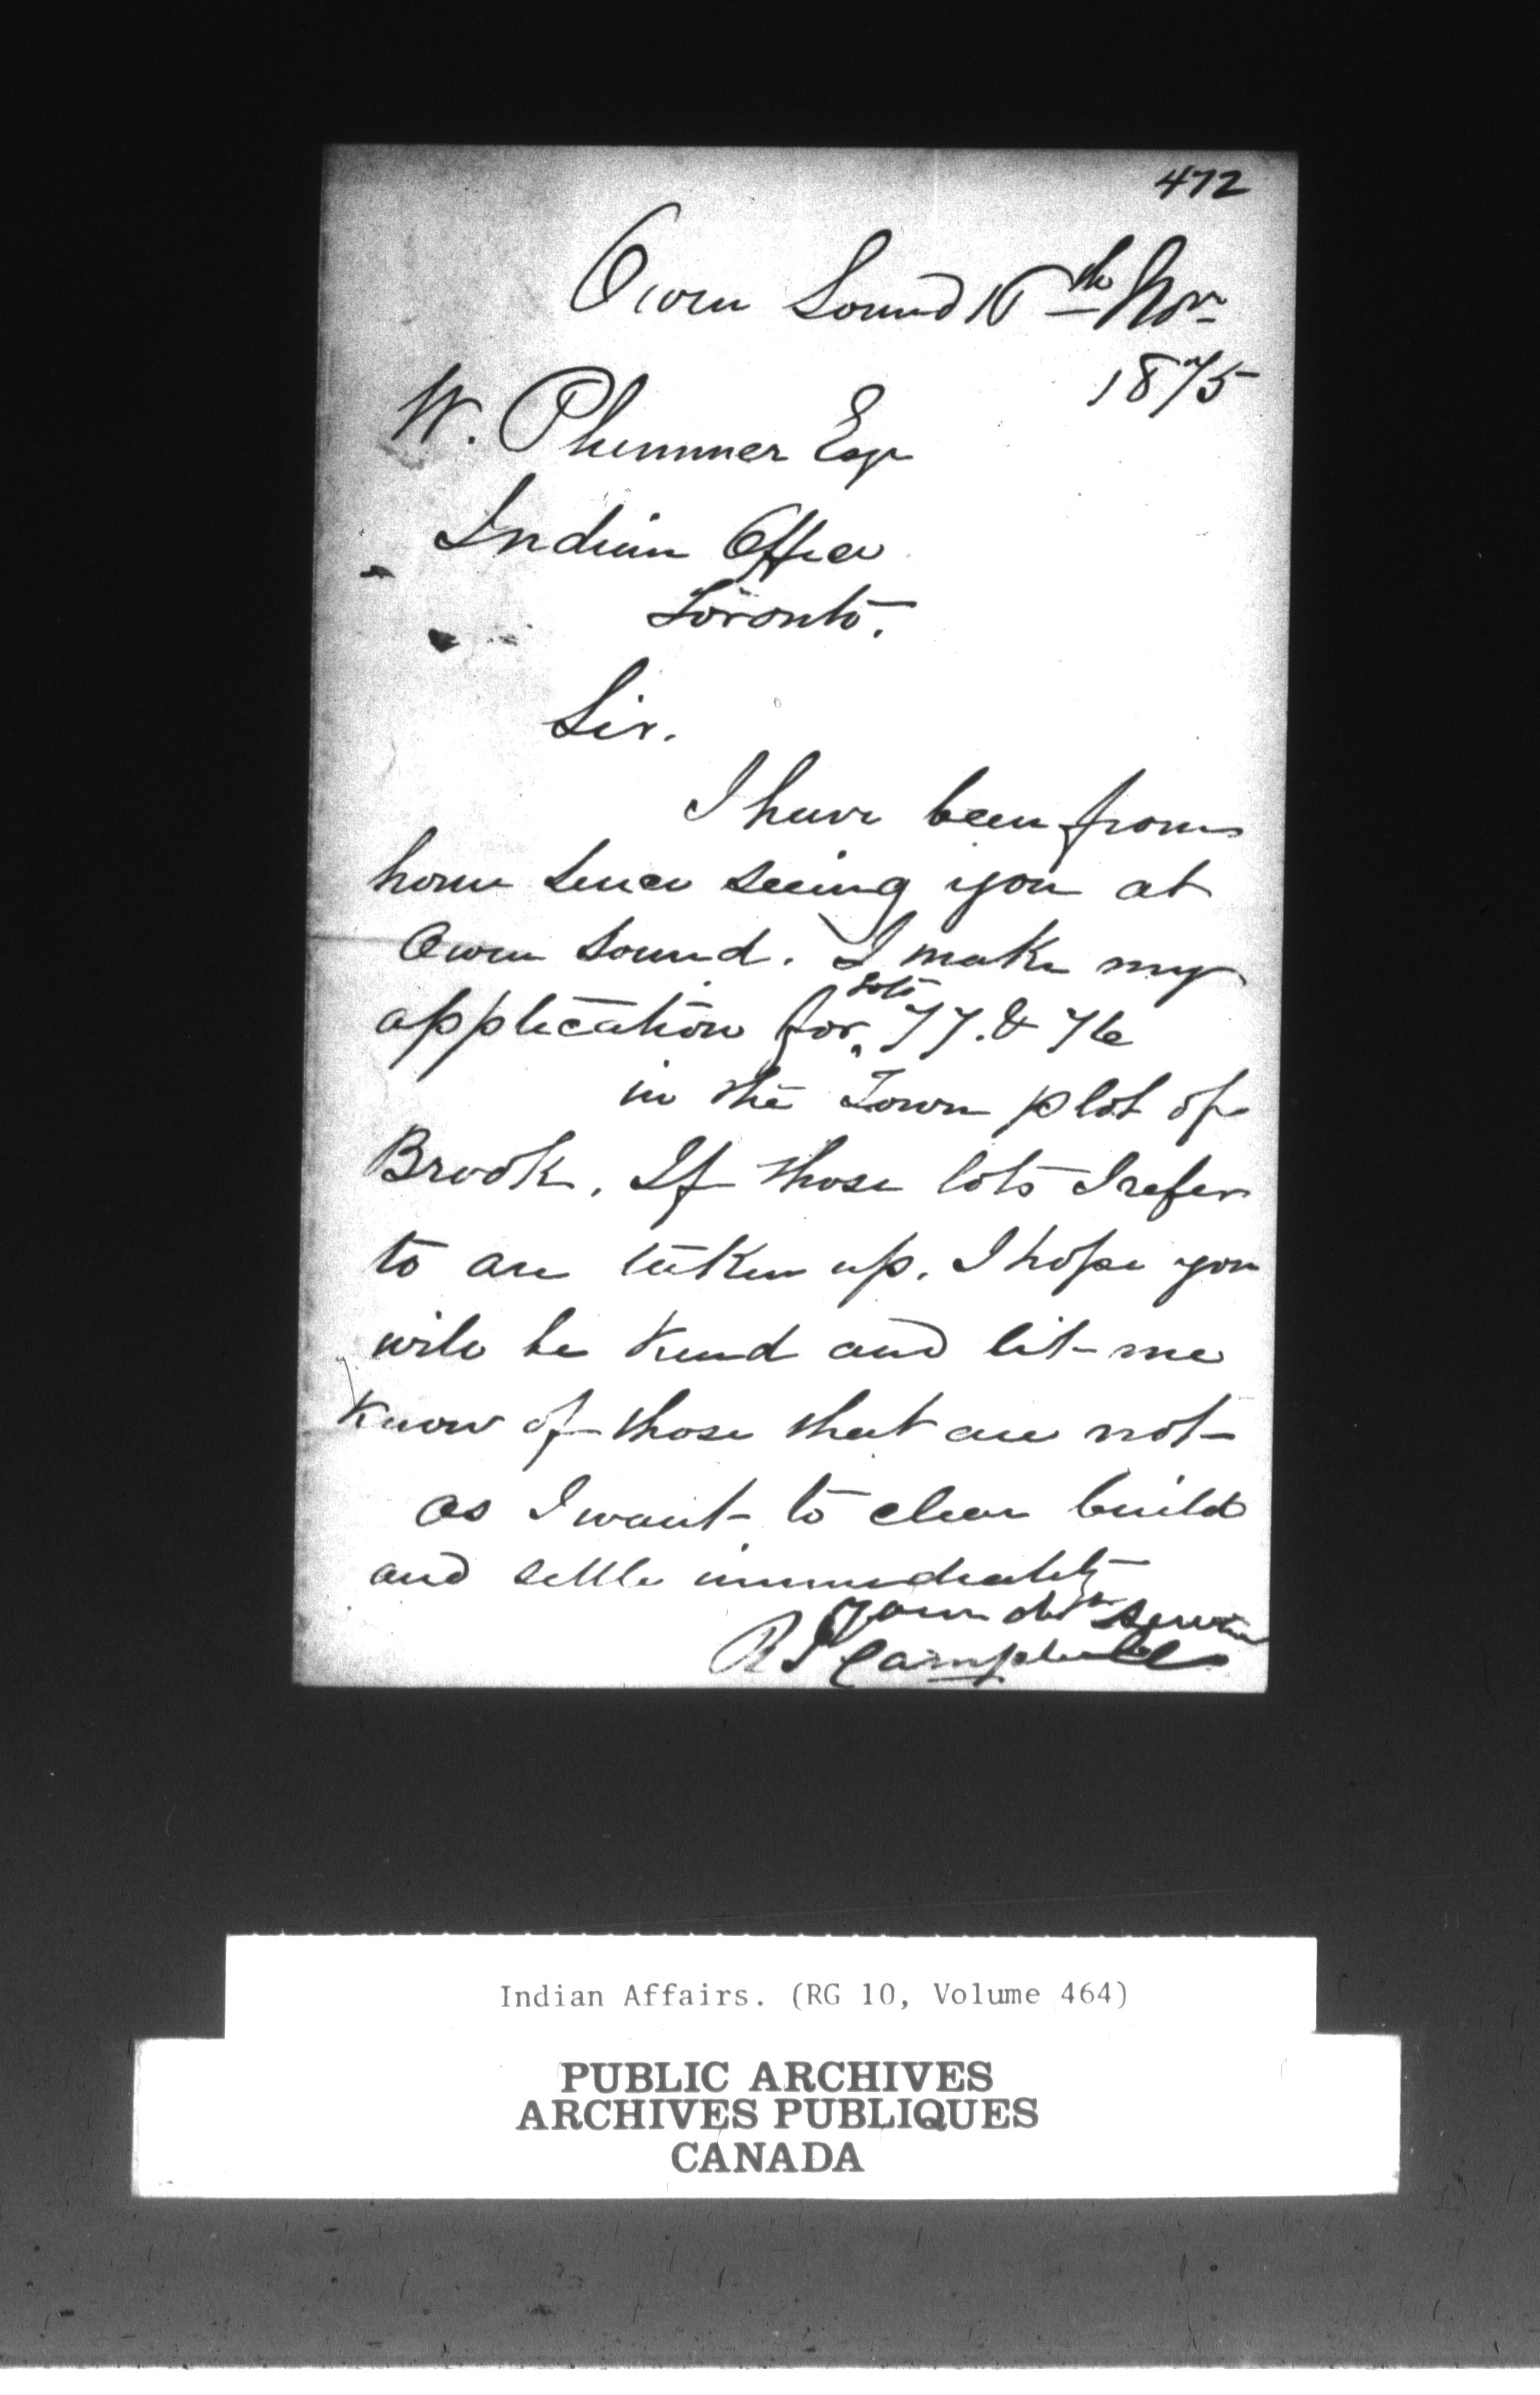 472
Owen Sound 10th Nov
1875
W. Plummer Esqr
Indian Office
Toronto.
Sir.
I have been from
home since seeing you at
Owen Sound. I make my
lots
application for 77. & 76
in the Town plot of
Brook. If those lots I refer
to are taken up. I hope you
will be kind and let me
know of those that are not
as I want to clear build
and settle immediately
Your obt
R Campbell
Indian Affairs. (RG 10, Volume 464)
PUBLIC ARCHIVES
ARCHIVES PUBLIQUES
CANADA